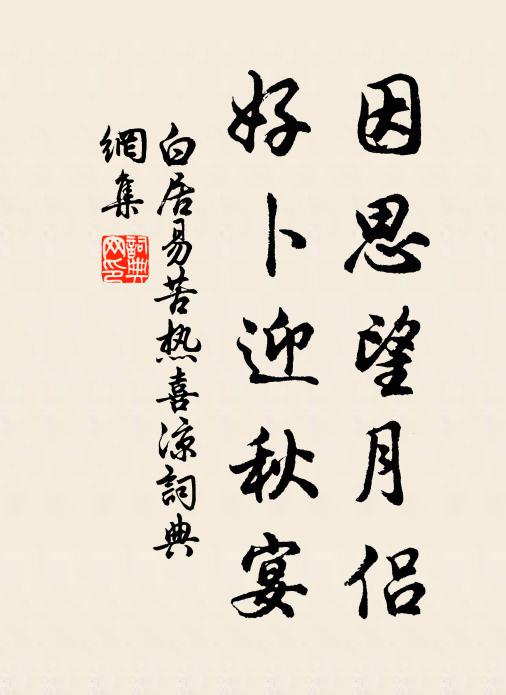 因思望月侣
好卜迎秋宴
白居易苦热喜凉詞典
網集
詞典
网印